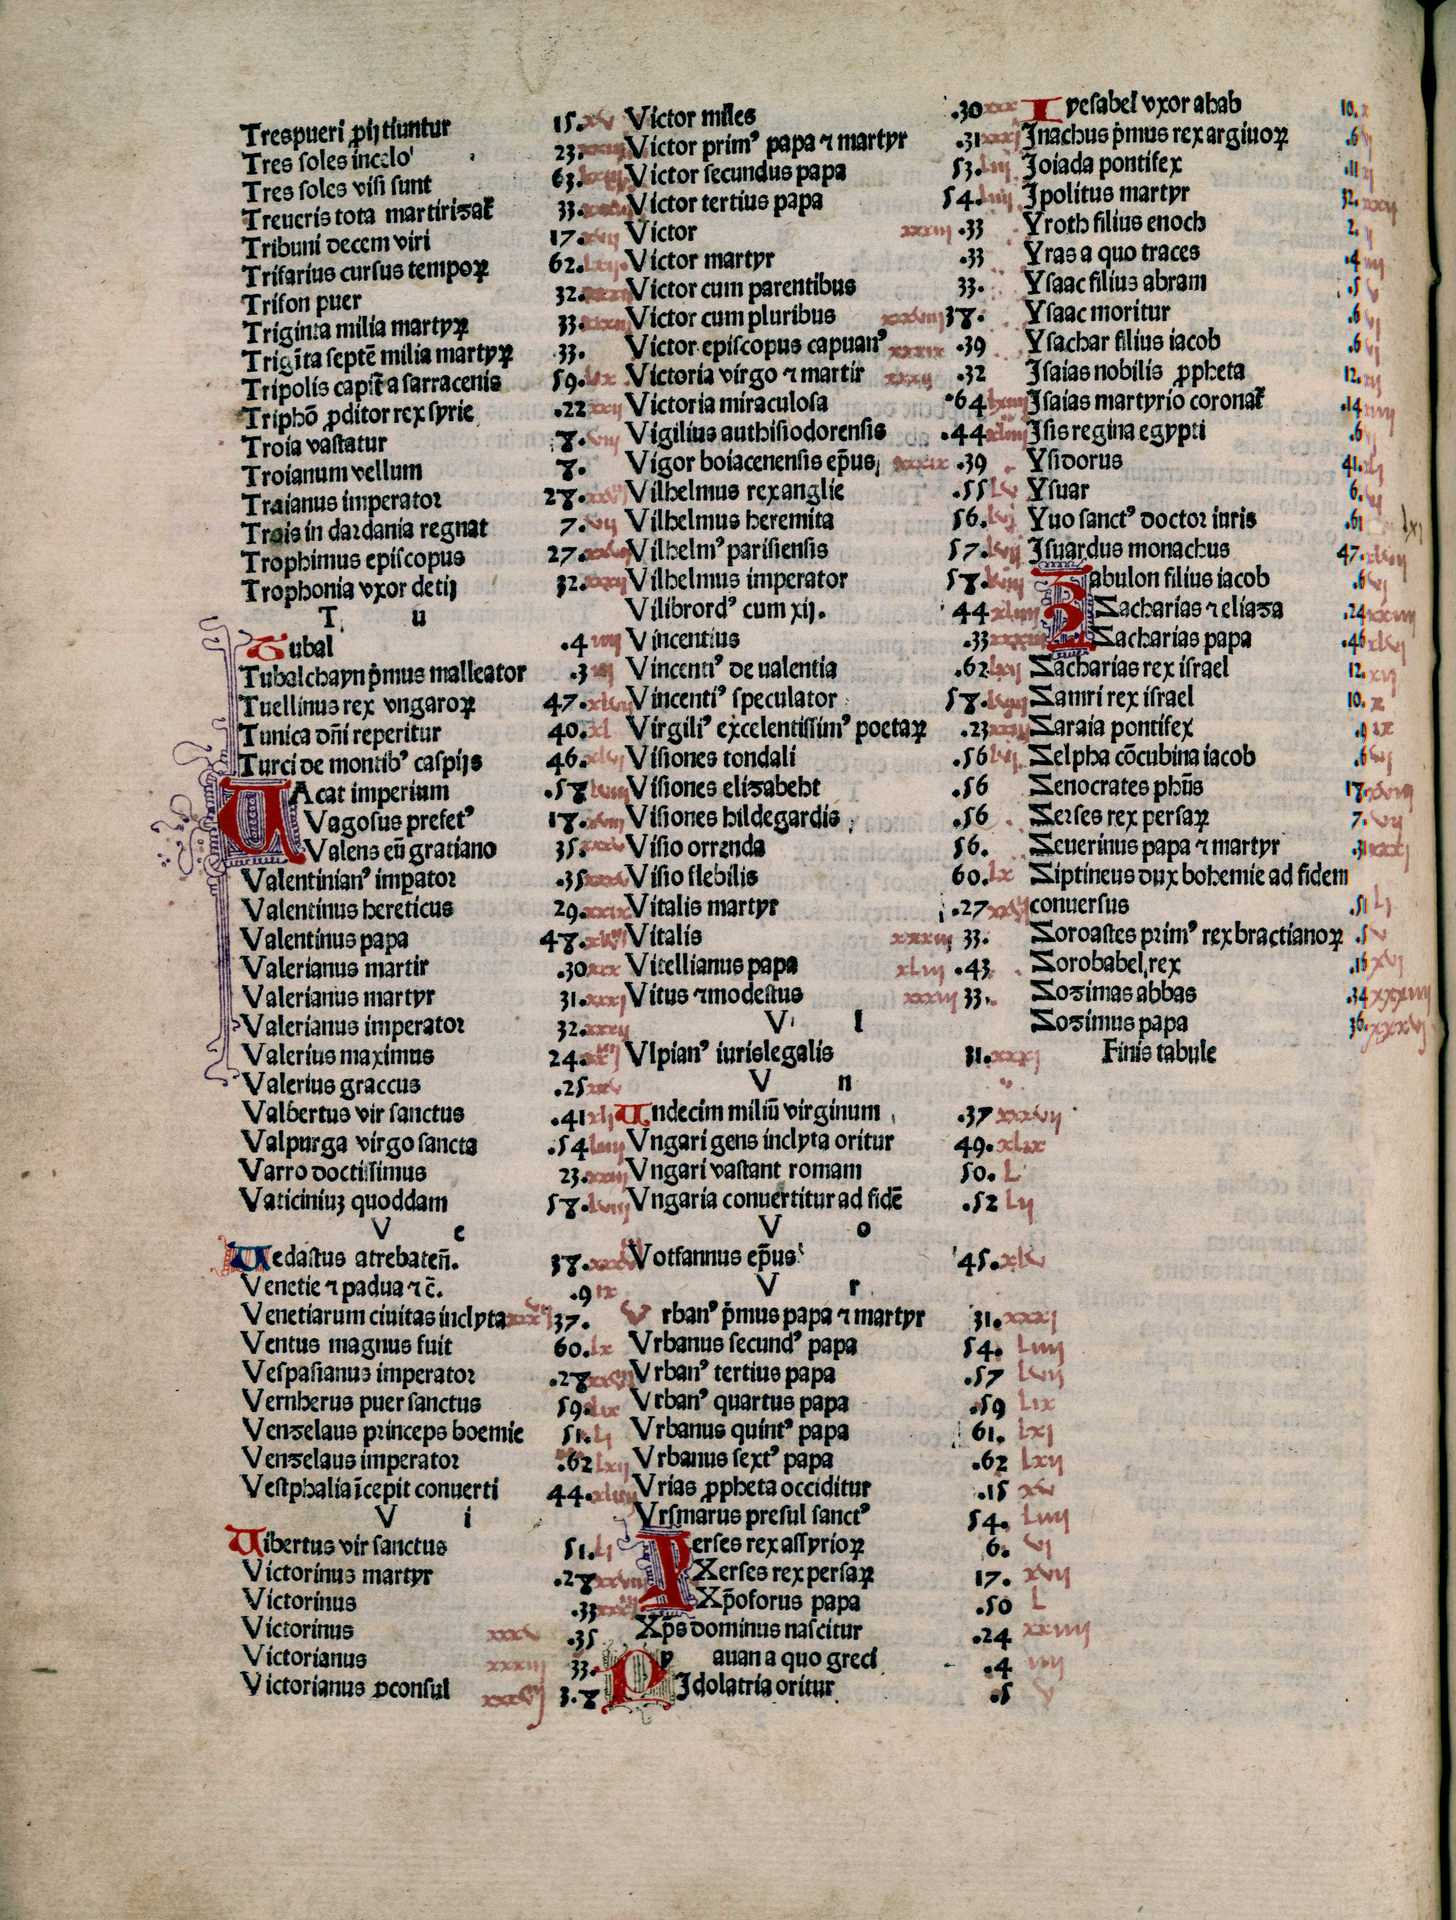 Trespueri ꝓijtiuntur 15. xv
Tres soles incelo 23. xxiii
Tres soles visi sunt 63. lxiii
Treueris tota martirizat᷑ 33.
Tribuni decem viri 17. xvij
Trifarius cursus tempoꝝ 62. lxij.
Trifon puer 32. xxxij
Triginta milia martyꝝ 33. xxxiij
Trigīta septē milia martyꝝ 33.
Tripolis capit᷑ a sarracenis 59. lix
Triphō ꝓditor rex syrie .22 xxij
Troia vastatur 8. viij
Troianum vellum 8.
Traianus imperator 28.
Trois in dardania regnat 7. vij
Trophimus episcopus 27.
Trophonia vxor detij 32. xxxij
T. u
Tubal .4 iiij
Tubalchayn p̄mus malleator .3 iij
Tuellinus rex vngaroꝝ 47. xlvij
Tunica dn̄i reperitur 40. xl
Turci de montibꝰ caspijs 46. xlvj
VAcat imperium .58 lviij
Vagosus prefetꝰ 18. xviij
Valens eū gratiano 35. xxxv
Valentinianꝰ impator .35 xxxv
Valentinus hereticus 29. xxix
Valentinus papa 48.
Valerianus martir .30 xxx
Valerianus martyr 31. xxxj
Valerianus imperator 32. xxxij
Valerius maximus 24.
Valerius graccus .25 xxv
Valbertus vir sanctus .41 xlj
Valpurga virgo sancta .54 liiij
Varro doctissimus 23. xxiij
Vaticiniuꝫ quoddam 58. lviij
V e
Vedastus atrebaten̄. 38.
Venetie ⁊ padua ⁊ c̄. .9 ix
Venetiarum ciuitas inclyta 37.
Ventus magnus fuit 60. lx
Vespasianus imperator .28
Vernherus puer sanctus 59. lix
Venzelaus princeps boemie 51. Lj
Venzelaus imperator .62 lxij
Vestphalia īcepit conuerti 44. xliiij
V i
Vibertus vir sanctus 51. Lj
Victorinus martyr .28 xxviij
Victorinus .33
Victorinus xxxv .35
Victorianus xxxiij 33.
Victorianus ꝓconsul 3.8
Victor miles .30 xxx
Victor primꝰ papa ⁊ martyr .31 xxxj
Victor secundus papa 53. Liij
Victor tertius papa 54. liiij
Victor xxxiij .33
Victor martyr .33
Victor cum parentibus 33.
Victor cum pluribus xxxviij 38.
Victor episcopus capuanꝰ xxxix .39
Victoria virgo ⁊ martir xxxij .32
Victoria miraculosa .64 lxiiij
Vigilius authisiodorensis .44 xliiij
Vigor boiacenensis ep̄us xxxix .39
Vilhelmus rex anglie .55 Lv
Vilhelmus heremita 56. lvj
Vilhelmꝰ parisiensis 57. lvij
Vilhelmus imperator 58. lviij
Vilibrordꝰ cum xij. 44 xliiij
Vincentius .33 xxxiij
Vincentiꝰ de ualentia .62 lxij
Vincentiꝰ speculator 58. lviij
Virgiliꝰ excelentissimꝰ poetaꝝ .23 xxiij
Visiones tondali .56 lvj
Visiones elizabeht .56
Visiones hildegardis .56
Visio orrenda 56.
Visio flebilis 60. lx
Vitalis martyr .27
Vitalis xxxiij 33.
Vitellianus papa xliij .43
Vitus ⁊modestus xxxiij 33.
V l
Vlpianꝰ iurislegalis 31. xxxj
V n
Vndecim miliū virginum .37 xxxvij
Vngari gens inclyta oritur 49. xlix
Vngari vastant romam 50. L
Vngaria conuertitur ad fidē .52 Lij
V o
Votfannus ep̄us 45. xlv
V r
Vrbanꝰ p̄mus papa ⁊ martyr 31. xxxj
Vrbanus secundꝰ papa 54. Liiij
Vrbanꝰ tertius papa .57 Lvij
Vrbanꝰ quartus papa .59 Lix
Vrbanus quintꝰ papa 61. lxj
Vrbanus sextꝰ papa .62 lxij
Vrias ꝓpheta occiditur .15 xv
Vrsmarus presul sanctꝰ 54. Liiij
Xerses rex assyrioꝝ 6. vj
Xerses rex persaꝝ 17. xvij
Xp̄oforus papa .50 L
Xp̄s dominus nascitur .24 xxiiij
Y auan a quo greci .4 iiij
Idolatria oritur .5 v
I yesabel vxor ahab 10. x
Inachus p̄mus rex argiuoꝝ .6
Ioiada pontifex .11
Ipolitus martyr 32. xxxij
Yroth filius enoch 2.
Yras a quo traces .4 iiij
Ysaac filius abram .5 v
Ysaac moritur .6 vj
Ysachar filius iacob .6 vj
Isaias nobilis ꝓpheta 12. xij
Isaias martyrio coronat᷑ .14 xiiij
Isis regina egypti .6
Ysidorus 41. xlj
Ysuar 6. vj
Yuo sanctꝰ doctor iuris .61 lxj
Isuardus monachus 47. xlvij
Zabulon filius iacob .6 vj
Zacharias ⁊ eliaza .24 xxiiij
Zacharias papa .46 xlvj
Zacharias rex israel 12. xij
Zamri rex israel 10. x
Zaraia pontifex .9 ix
Zelpha cōcubina iacob .6 vj
Zenocrates phūs 18. xviij
Zerses rex persaꝝ 7. vij
Zeuerinus papa ⁊ martyr .31 xxxj
Ziptineus dux bohemie ad fidem
conuersus .51 Lj
Zoroastes primꝰ rex bractianoꝝ .5 v
Zorobabel rex .16 xvj
Zozimas abbas .34 xxxiiij
Zozimus papa 36. xxxvj
Finis tabule